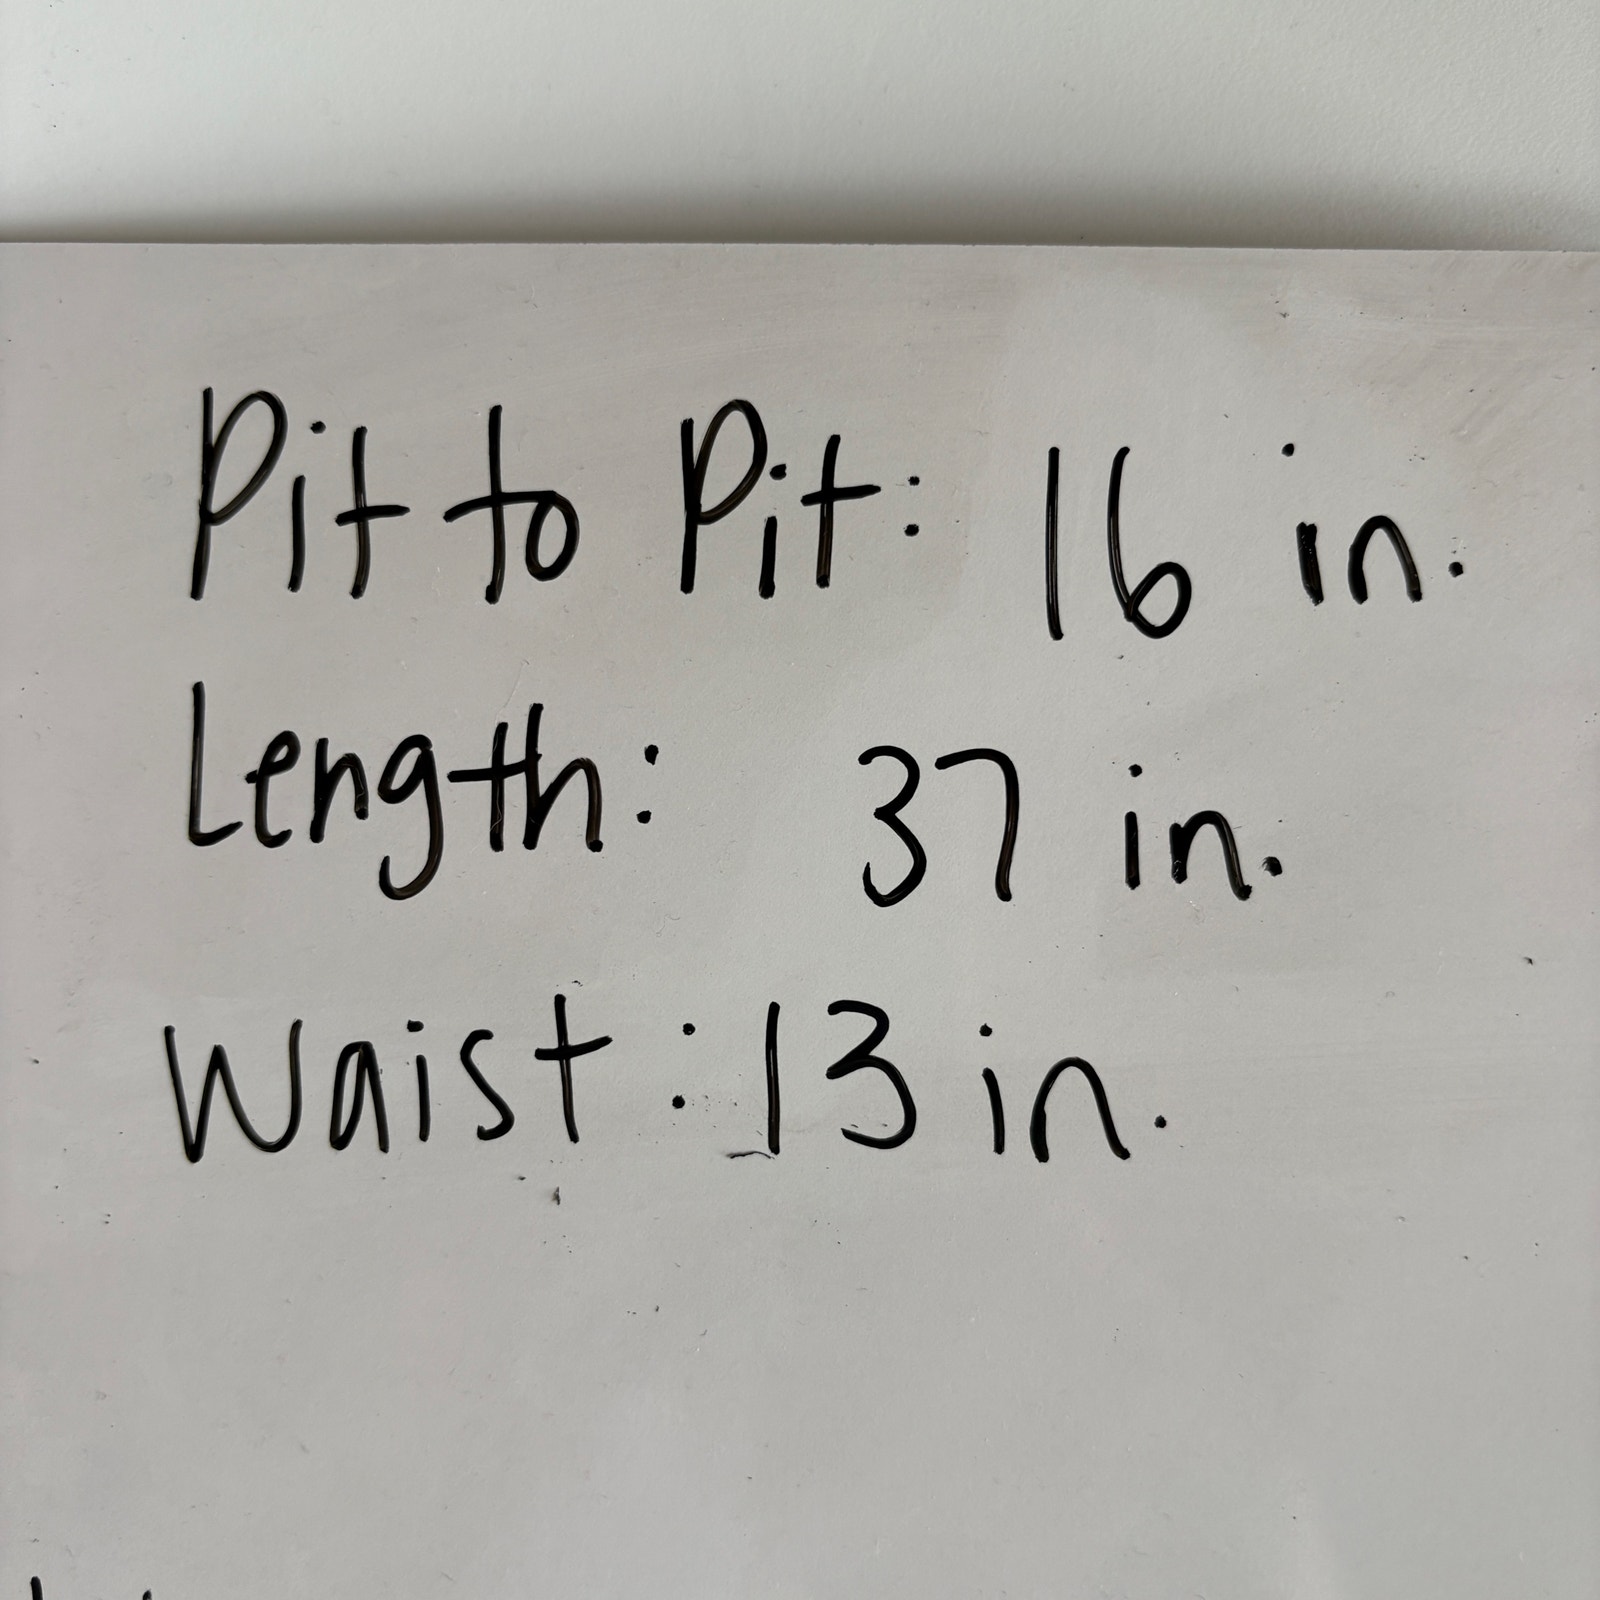 Pit to Pit: 16 in.
Length: 37 in.
Waist: 13 in.